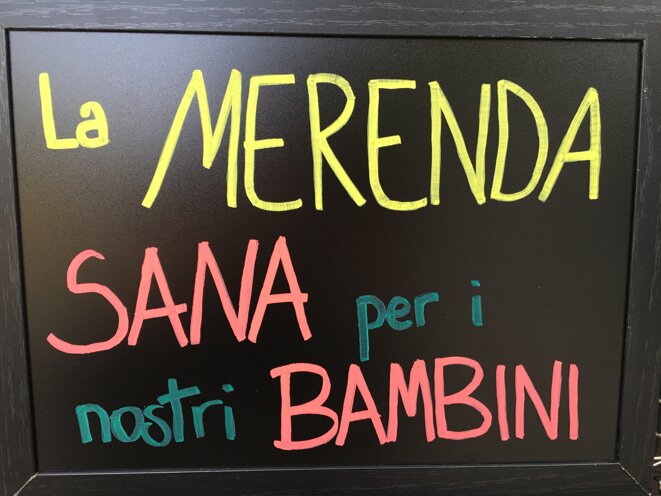 La MERENDA
SANA per i
nostri BAMBINI